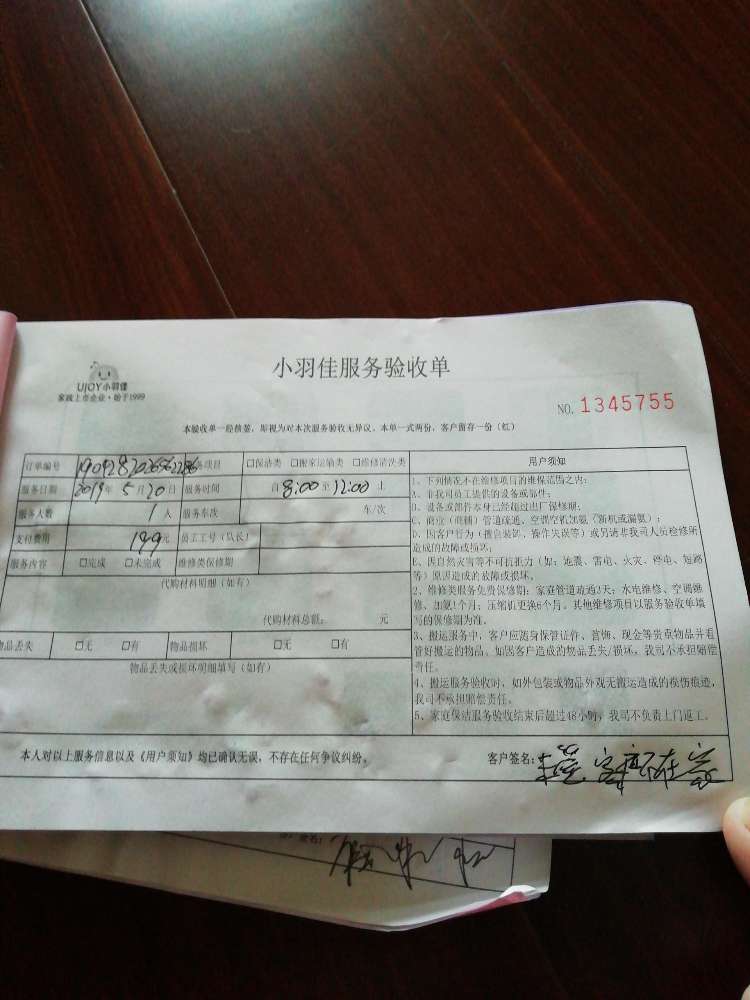 UJOY小羽佳
家政上市企业·始于1999
小羽佳服务验收单
NO. 1345755
本验收单一经核签，即视为对本次服务验收无异议。本单一式两份，客户留存一份（红）
订单编号 服务项目 □保洁类 □搬家运输类 □维修清洗类
服务日期 2019年5月20日 服务时间 自8:00至12:00止
服务人数 1人 服务车次 车/次
支付费用 199元 员工工号（队长）
服务内容 □完成 □未完成 维修类保修期
代购材料明细（如有）
代购材料总额： 元
物品丢失 □无 □有 物品损坏 □无 □有
物品丢失或损坏明细填写（如有）
用户须知
1、下列情况不在维修项目的维保范围之内：
A、非我司员工提供的设备或部件；
B、设备或部件本身已经超过出厂保修期；
C、商业（商铺）管道疏通、空调空机加氟（新机或漏氟）；
D、因客户行为（擅自装卸、操作失误等）或另请非我司人员检修所
造成的故障或损坏；
E、因自然灾害等不可抗拒力（如：地震、雷电、火灾、停电、短路
等）原因造成的故障或损坏。
2、维修类服务免费保修期：家庭管道疏通3天；水电维修、空调维
修、加氟1个月；压缩机更换6个月。其他维修项目以服务验收单填
写的保修期为准。
3、搬运服务中，客户应随身保管证件、首饰、现金等贵重物品并看
管好搬运的物品。如因客户造成的物品丢失/损坏，我司不承担赔偿
责任。
4、搬运服务验收时，如外包装或物品外观无搬运造成的残伤痕迹，
我司不承担赔偿责任。
5、家庭保洁服务验收结束后超过48小时，我司不负责上门返工。
本人对以上服务信息以及《用户须知》均已确认无误，不存在任何争议纠纷。 客户签名： 客户不在家